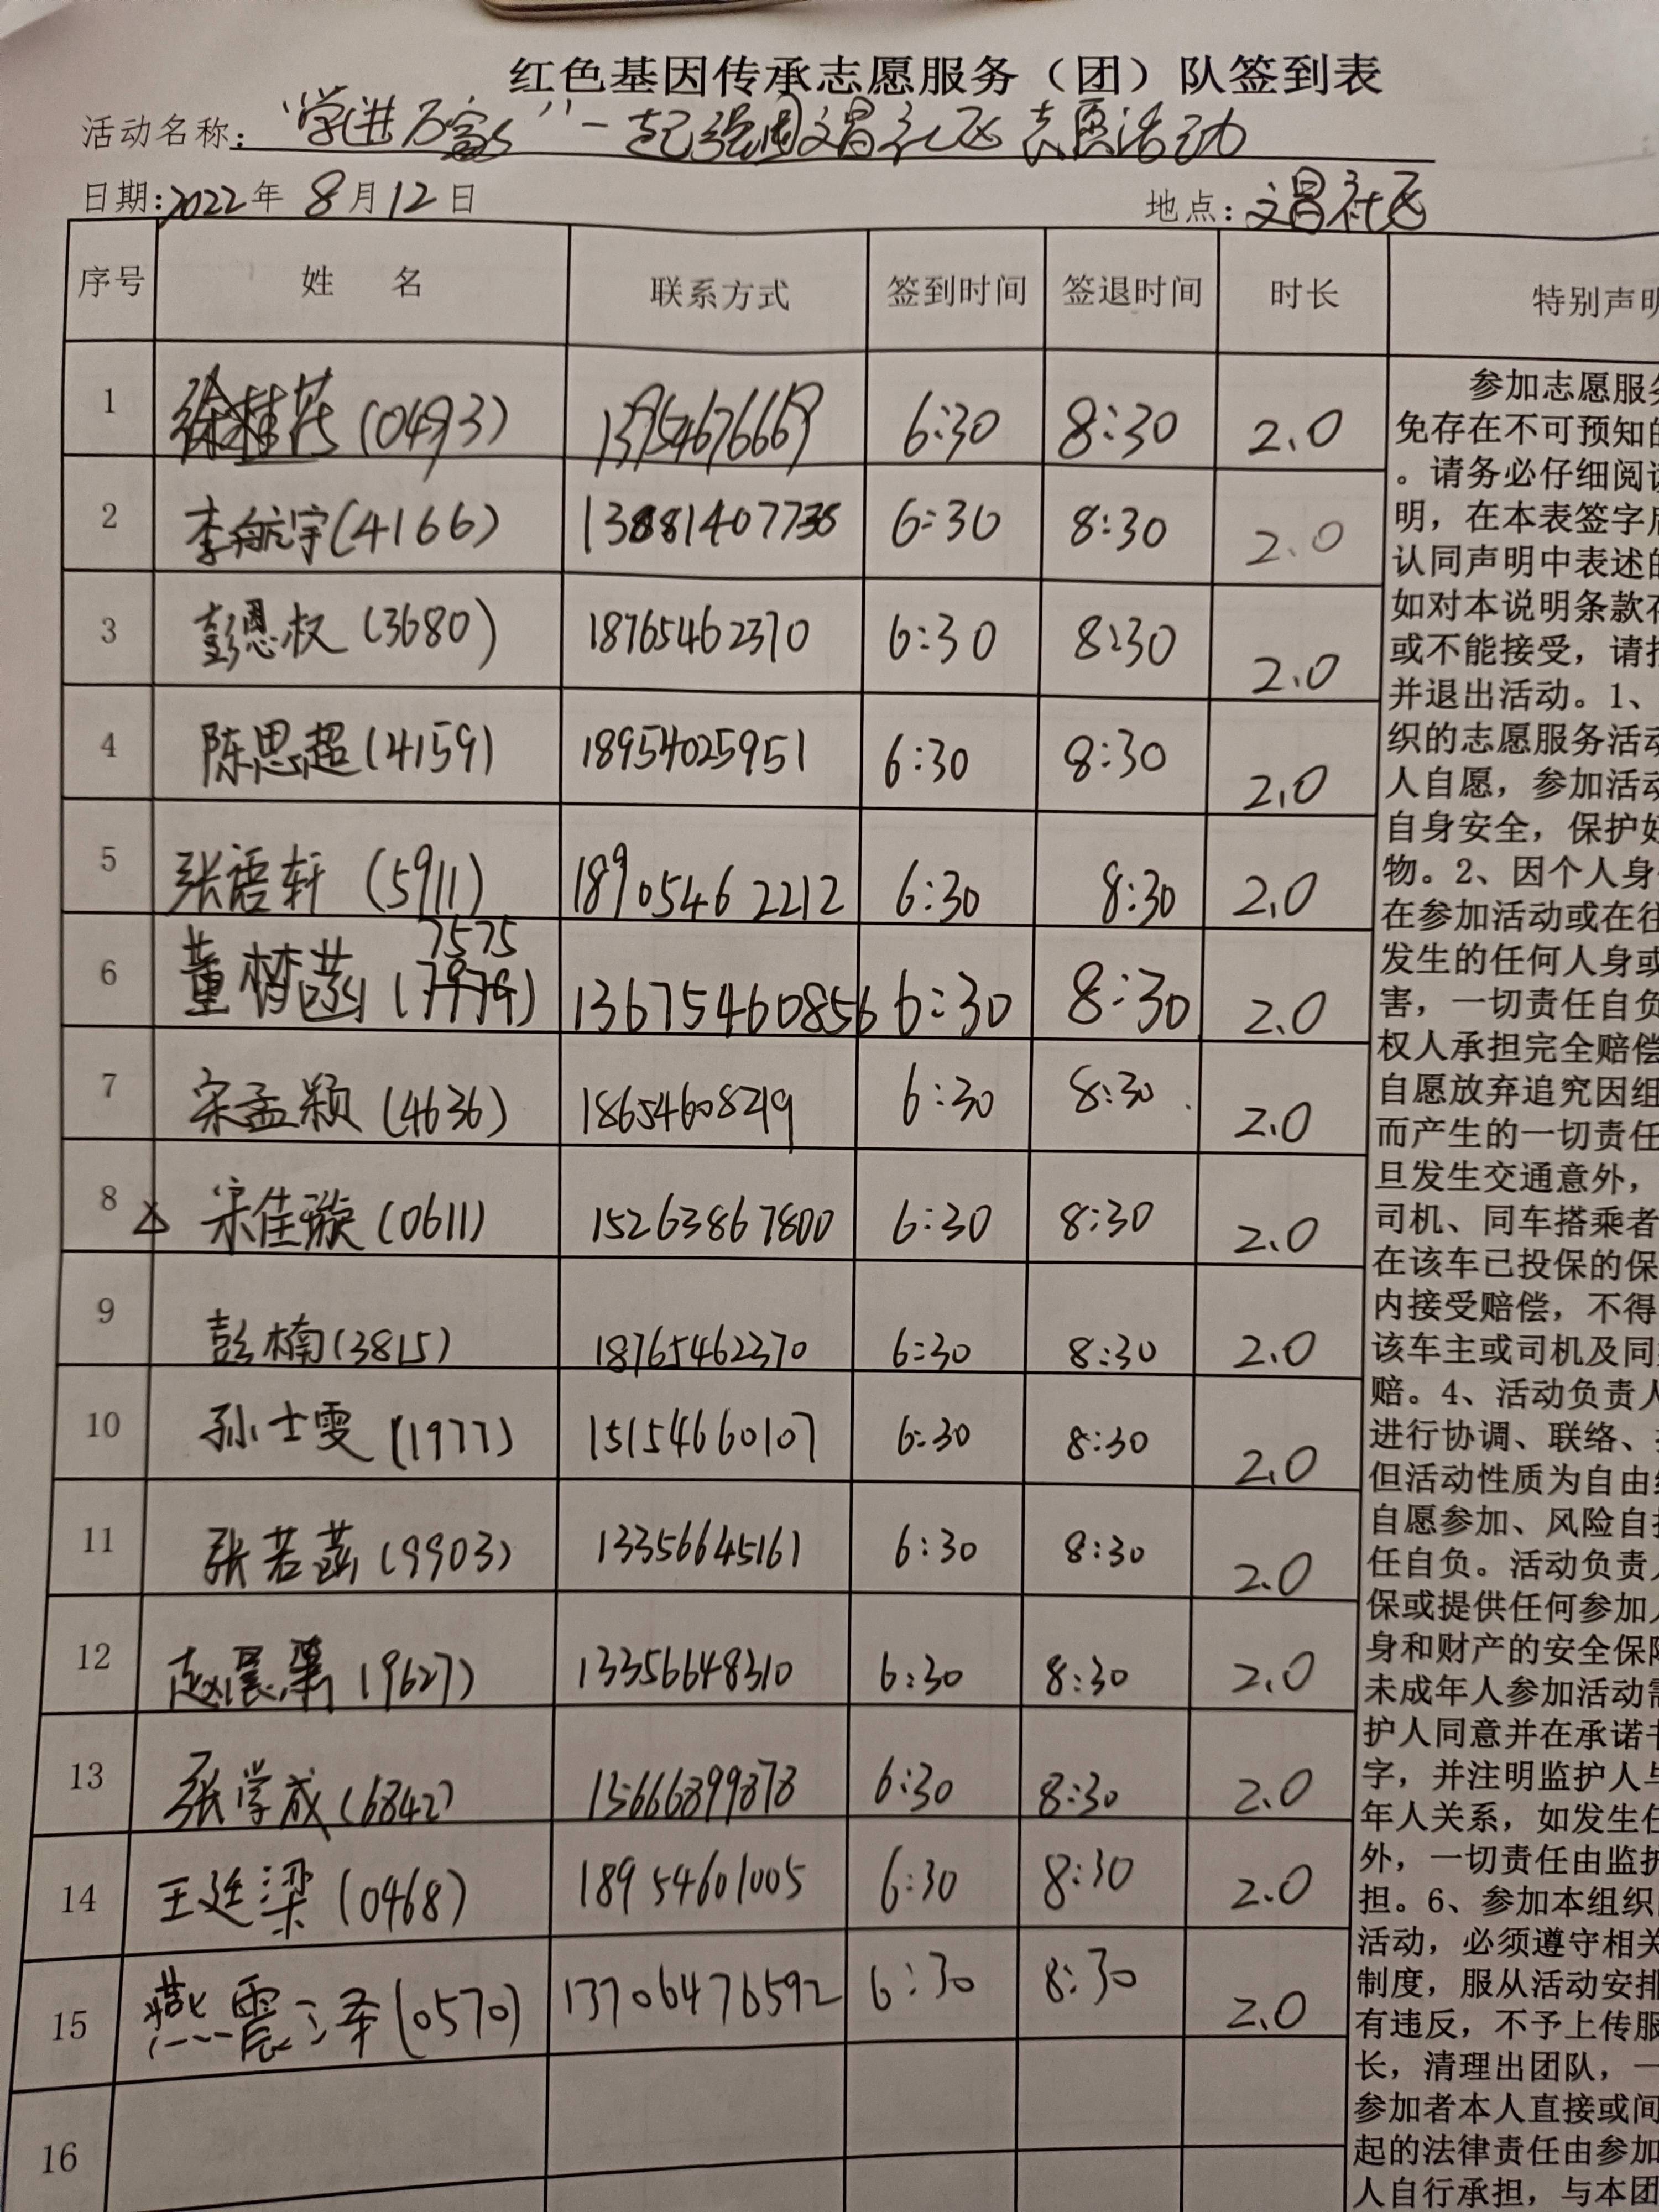 红色基因传承志愿服务（团）队签到表
活动名称：“学进万家”一起强国文昌社区志愿活动
日期：2022年 8月12日 地点：文昌社区
序号 姓 名 联系方式 签到时间 签退时间 时长 特别声明
1 徐桂花(0493) 13954676669 6:30 8:30 2.0
2 李航宇(4166) 6:30 8:30 2.0
3 彭恩权(3680) 18765462370 6:30 8:30 2.0
4 陈思超(4159) 18954025951 6:30 8:30 2.0
5 张语轩(5911) 18905462212 6:30 8:30 2.0
7575
6 董楠菡 13675460856 6:30 8:30 2.0
7 宋孟颖(4636) 18654608219 6:30 8:30 2.0
8 △ 宋佳璇(0611) 15263867800 6:30 8:30 2.0
9 彭楠(3815) 18765462370 6:30 8:30 2.0
10 孙士雯(1977) 15154660107 6:30 8:30 2.0
11 张若菡(9903) 13356645161 6:30 8:30 2.0
12 赵晨(9627) 13356648310 6:30 8:30 2.0
13 张学成(6842) 15666899878 6:30 8:30 2.0
14 王廷梁(0468) 18954601005 6:30 8:30 2.0
15 燕震泽(0570) 13706476592 6:30 8:30 2.0
16
参加志愿服务
免存在不可预知的
。请务必仔细阅读
明，在本表签字后
认同声明中表述的
如对本说明条款存
或不能接受，请
并退出活动。1、
织的志愿服务活动
人自愿，参加活动
自身安全，保护好
物。2、因个人身
在参加活动或在往
发生的任何人身或
害，一切责任自负
权人承担完全赔偿
自愿放弃追究因组
而产生的一切责任
旦发生交通意外，
司机、同车搭乘者
在该车已投保的保
内接受赔偿，不得
该车主或司机及同
赔。4、活动负责人
进行协调、联络、
但活动性质为自由
自愿参加、风险自
任自负。活动负责人
保或提供任何参加人
身和财产的安全保障
未成年人参加活动需
护人同意并在承诺书
字，并注明监护人与
年人关系，如发生任
外，一切责任由监护
担。6、参加本组织
活动，必须遵守相关
制度，服从活动安排
有违反，不予上传服
长，清理出团队，一
参加者本人直接或间
起的法律责任由参加
人自行承担，与本团